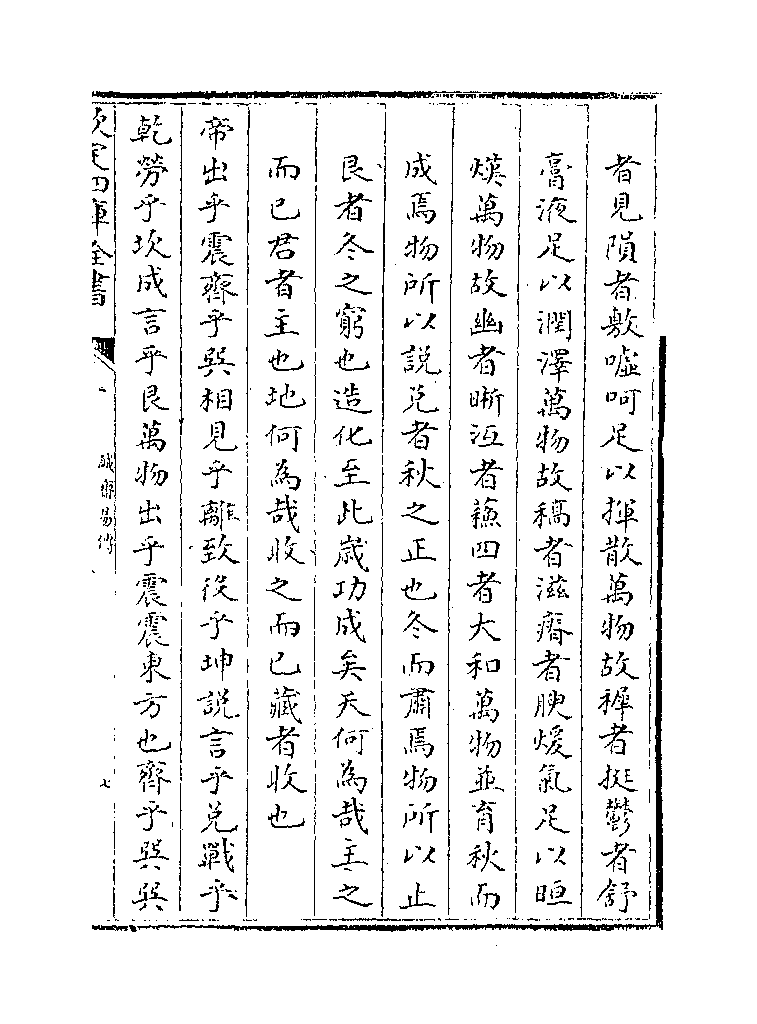 者見隕者敷噓呵足以揮散萬物故穉者挺鬱者舒
膏液足以潤澤萬物故稿者滋瘠者腴煖氣足以晅
熯萬物故幽者晰沍者蘓四者大和萬物並育秋而
成焉物所以說兊者秋之正也冬而肅焉物所以止
艮者冬之窮也造化至此歲功成矣天何為哉主之
而已君者主也地何為哉收之而已藏者收也
帝出乎震齊乎巽相見乎離致役乎坤說言乎兊戰乎
乾勞乎坎成言乎艮萬物出乎震震東方也齊乎巽巽
欽定四庫全書
誠齋易傳
七